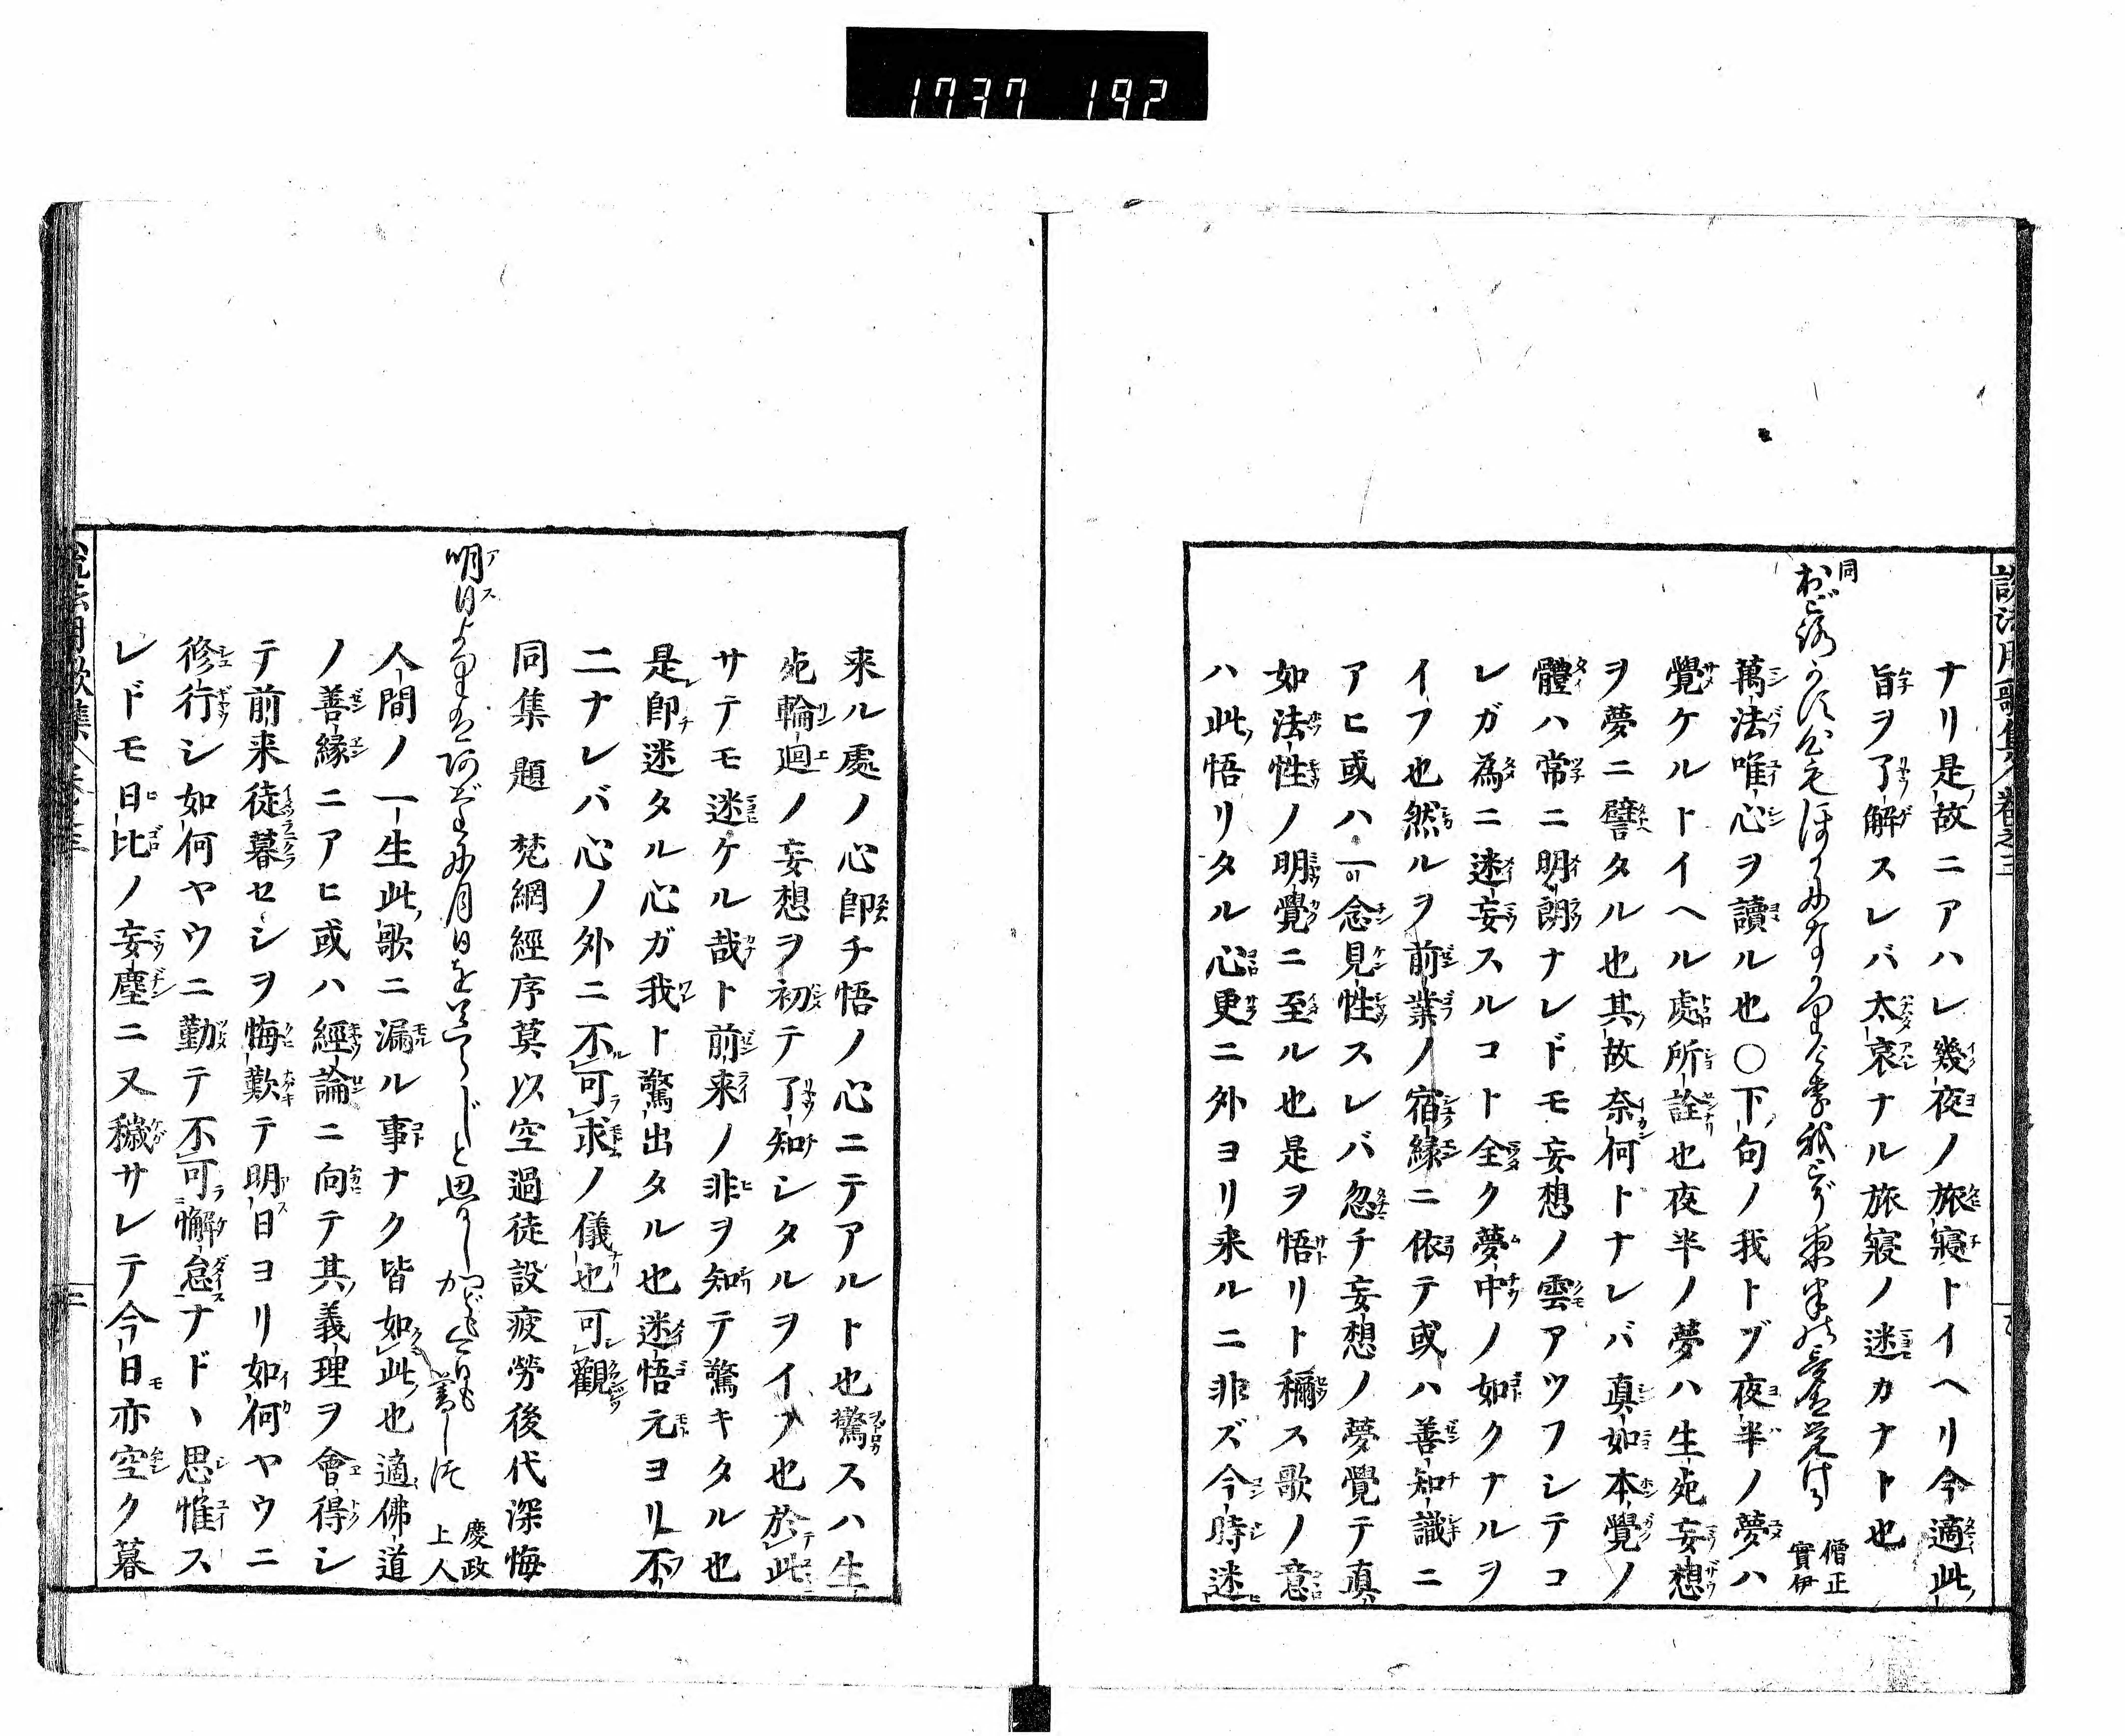 1737 192
説法用歌集 巻之三
ナリ是故ニアハレ幾夜ノ旅寢トイヘリ今適此
旨ヲ了解スレバ太哀ナル旅寢ノ迷カナト也
同
僧正實伊
萬法唯心ヲ讀ル也〇下句ノ我トヅ夜半ノ夢ハ
覺ケルトイヘル處所詮也夜半ノ夢ハ生死妄想
ヲ夢ニ譬タル也其故奈何トナレバ真如本覺ノ
體ハ常ニ明朗ナレドモ妄想ノ雲アツフシテコ
レガ為ニ迷妄スルコト全ク夢中ノ如クナルヲ
イフ也然ルヲ前業ノ宿縁ニ依テ或ハ善知識ニ
アヒ或ハ一念見性スレバ忽チ妄想ノ夢覺テ真
如法性ノ明覺ニ至ル也是ヲ悟リト稱ス歌ノ意
ハ此悟リタル心更ニ外ヨリ来ルニ非ズ今時迷
来ル處ノ心即チ悟ノ心ニテアルト也驚スハ生
死輪廻ノ妄想ヲ初テ了知シタルヲイフ也於此
サテモ迷ケル哉ト前来ノ非ヲ知テ驚キタル也
是即迷タル心ガ我ト驚出タル也迷悟元ヨリ不
二ナレバ心ノ外ニ不可求ノ儀也可觀
同集題 梵網經序莫以空過徒設疲勞後代深悔
明日
慶政上人
人間ノ一生此歌ニ漏ル事ナク皆如此也適佛道
ノ善縁ニアヒ或ハ經論ニ向テ其義理ヲ會得シ
テ前来徒暮セシヲ悔歎テ明日ヨリ如何ヤウニ
修行シ如何ヤウニ勤テ不可懈怠ナドヽ思惟ス
レドモ日比ノ妄塵ニ又穢サレテ今日亦空ク暮
説法用歌集 巻之三 三